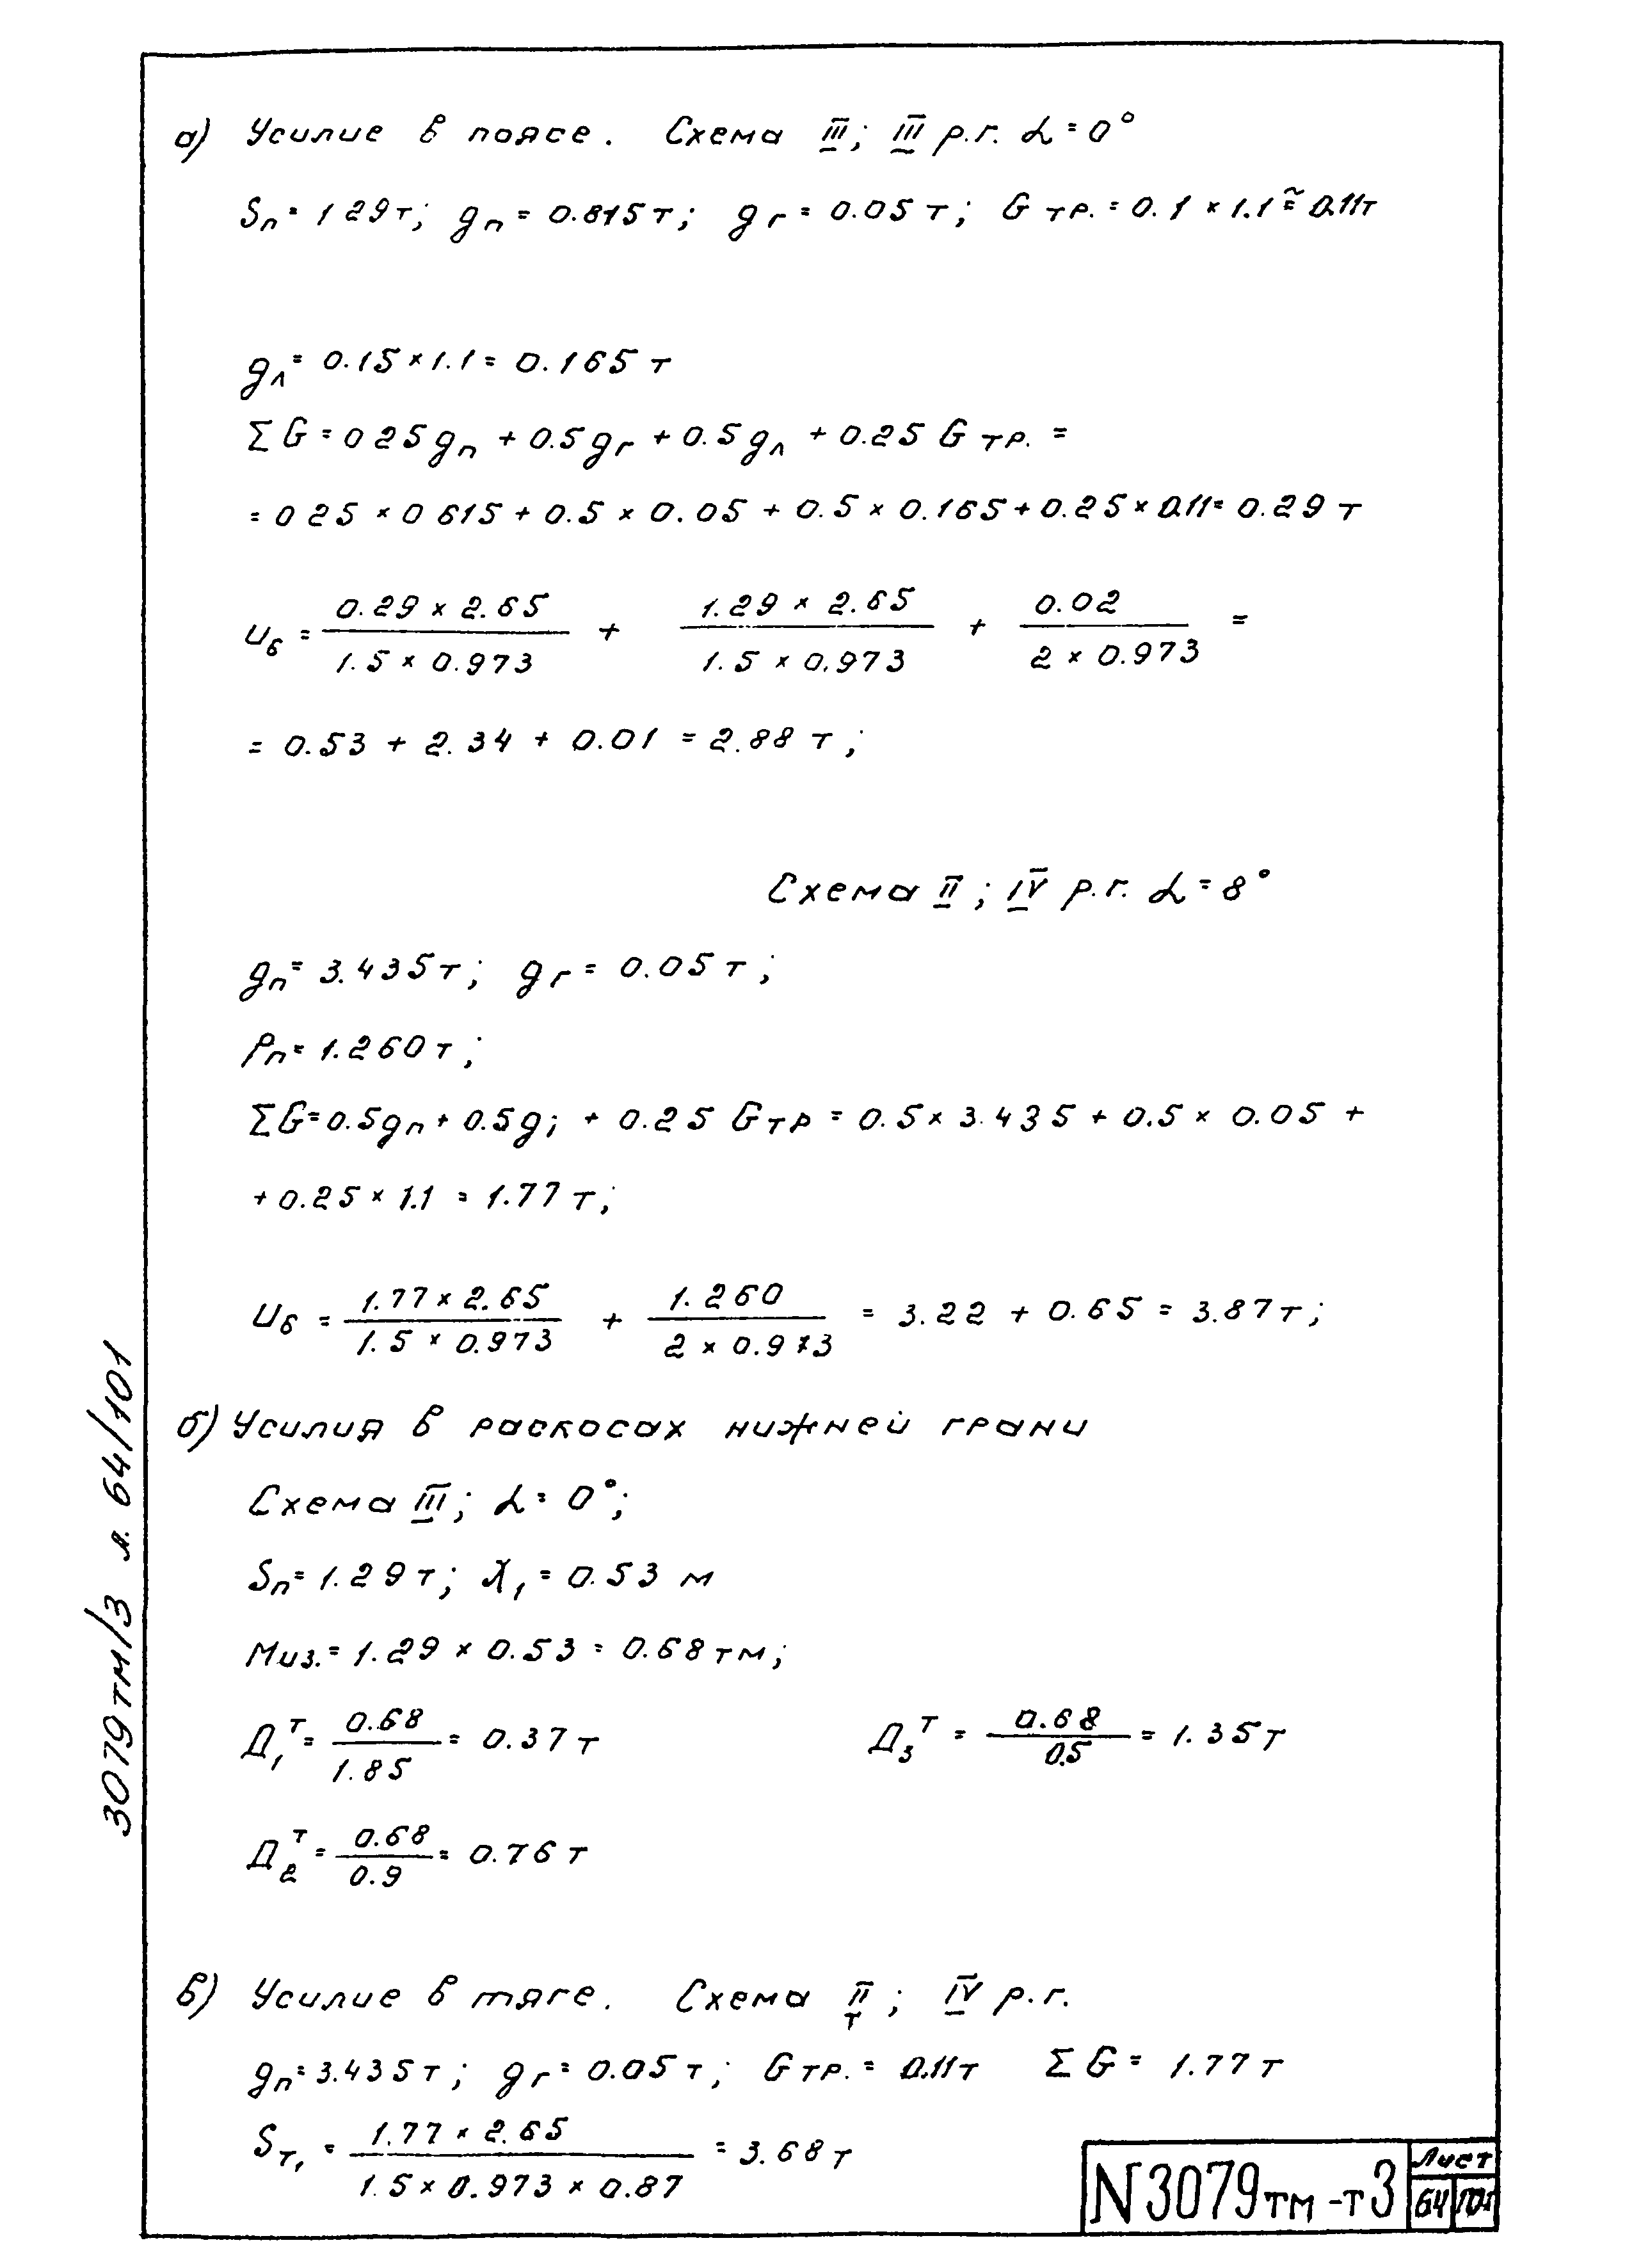 а) Усилие в поясе. Схема III; III р.г. α=0°
Sп= 1 29т; gп = 0.815т; gг = 0.05 т; G тр. = 0.1 × 1.1 ≅ 0.11т
gл = 0.15 × 1.1 = 0.165 т
ΣG = 0 25 gп + 0.5 gг + 0.5 gл + 0.25 G тр. =
= 0 25 × 0 615 + 0.5 × 0.05 + 0.5 × 0.165 + 0.25 × 0.11 = 0.29 т
Uб = (0.29 × 2.65)/(1.5 × 0.973) + (1.29 × 2.65)/(1.5 × 0.973) + 0.02/(2 × 0.973) =
= 0.53 + 2.34 + 0.01 = 2.88 т;
Схема II; IV р.г. α=8°
gп = 3.435т; gг = 0.05 т;
Pп = 1.260 т;
ΣG = 0.5gп + 0.5gг + 0.25 Gтр = 0.5 × 3.435 + 0.5 × 0.05 +
+ 0.25 × 1.1 = 1.77 т;
Uб = (1.77 × 2.65)/(1.5 × 0.973) + 1.260/(2 × 0.973) = 3.22 + 0.65 = 3.87т;
б) Усилия в раскосах нижней грани
Схема III; α = 0°;
Sп = 1.29 т; X₁ = 0.53 м
Mиз. = 1.29 × 0.53 = 0.68 тм;
Д₁ᵀ = 0.68/1.85 = 0.37 т Д₃ᵀ = 0.68/0.5 = 1.35т
Д₂ᵀ = 0.68/0.9 = 0.76 т
в) Усилие в тяге. Схема IIт; IV р.г.
gп = 3.435т; gг = 0.05 т; G тр. = 0.11т ΣG = 1.77 т
Sт₁ = (1.77 × 2.65)/(1.5 × 0.973 × 0.87) = 3.68 т
3079тм/3 л. 64/101
N3079тм-т3
Лист
64 101